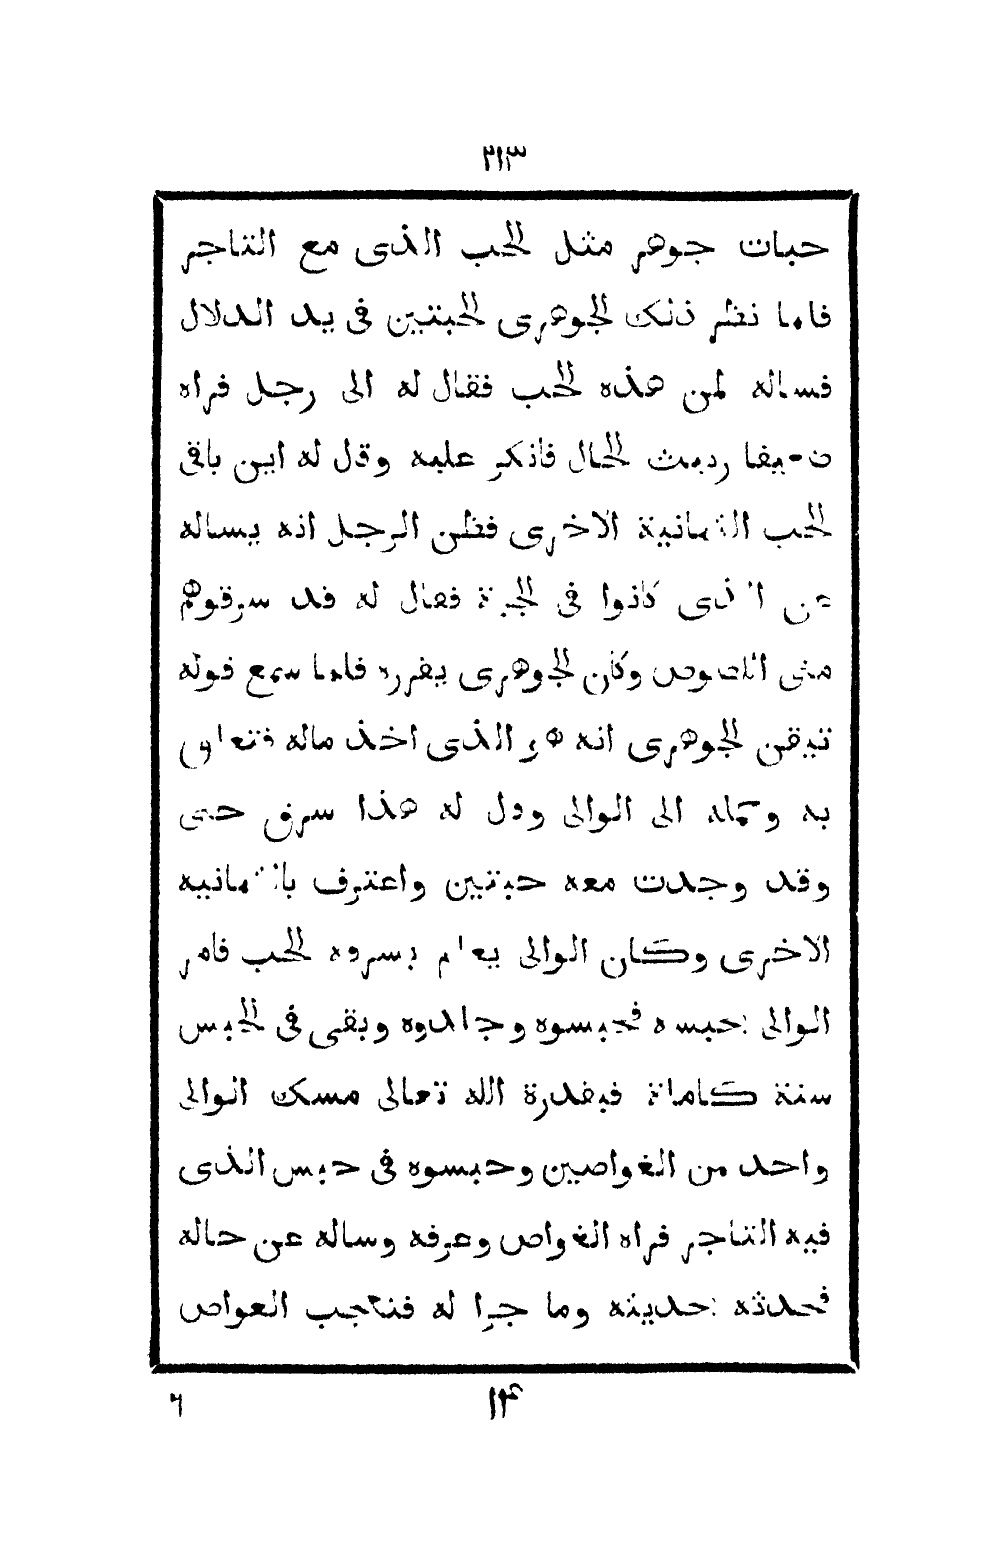 ٢١٣
حبات جوهر مثل الحب الذى مع التاجر
فلما نظر ذلك الجوهرى الحبتين فى يد الدلال
فساله لمن هذه الحب فقال له الى رجل فراه
ضعيفا رديث الحال فانكر عليه وقال له اين باقى
الحب الثمانية الاخرى فظن الرجل انه يساله
عن الذى كانوا فى الجبة فقال له قد سرقوهم
منى اللصوص وكان الجوهرى يقرره فلما سمع قوله
تيقن الجوهرى انه هو الذى اخذ ماله فتعلق
به وحمله الى الوالى وقال له هذا سرق حبى
وقد وجدت معه حبتين واعترف بالثمانيه
الاخرى وكان الوالى يعلم بسرقه الحب فامر
الوالى بحبسه فحبسوه وجلدوه وبقى فى الحبس
سنة كاملة فبقدرة الله تعالى مسك الوالى
واحد من الغواصين وحبسوه فى حبس الذى
فيه التاجر فراه الغواص وعرفه وساله عن حاله
فحدثه بحديثه وما جرا له فتعجب الغواص
١۴
٦